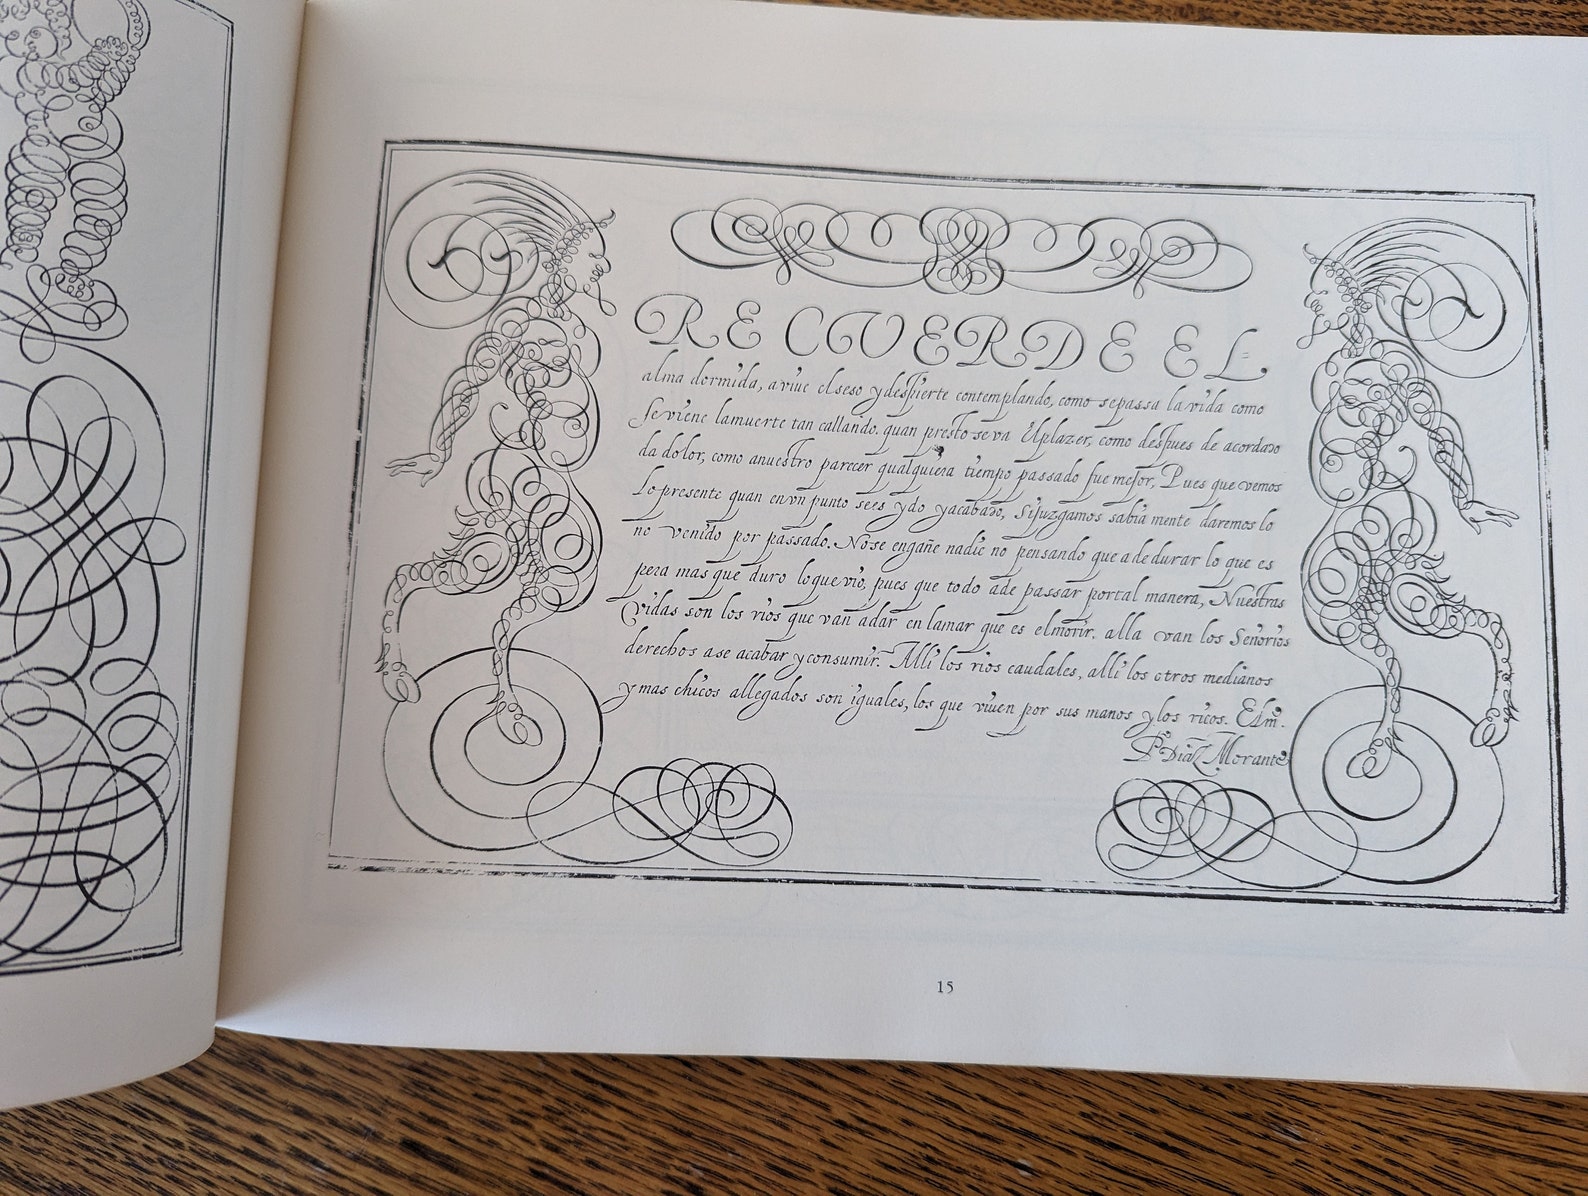 RECUERDE EL
alma dormida, aviue el seso y despierte contemplando, como se passa la vida como
se viene la muerte tan callando. quan presto se va El plazer, como despues de acordado
da dolor, como a nuestro parecer qualquiera tiempo passado fue mejor, Pues que vemos
lo presente quan en vn punto se es ydo y acabado, Si juzgamos sabia mente daremos lo
no venido por passado. No se engañe nadie no pensando que a de durar lo que es
pera mas que duro lo que vio, pues que todo a de passar por tal manera, Nuestras
Vidas son los rios que van a dar en la mar que es el morir. alla van los Señorios
derechos a se acabar y consumir. Alli los rios caudales, alli los otros medianos
y mas chicos allegados son iguales, los que viuen por sus manos y los ricos. El m.
P.º Diaz Morante
15